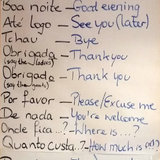 Boa noite - Good evening
Até logo - See you (later)
Tchau - Bye
Obrigada - Thank you
(say the ladies)
Obrigado - Thank you
Por favor - Please/Excuse me
De nada - You're welcome
Onde fica...? - Where is...?
Quanto custa..? - How much is